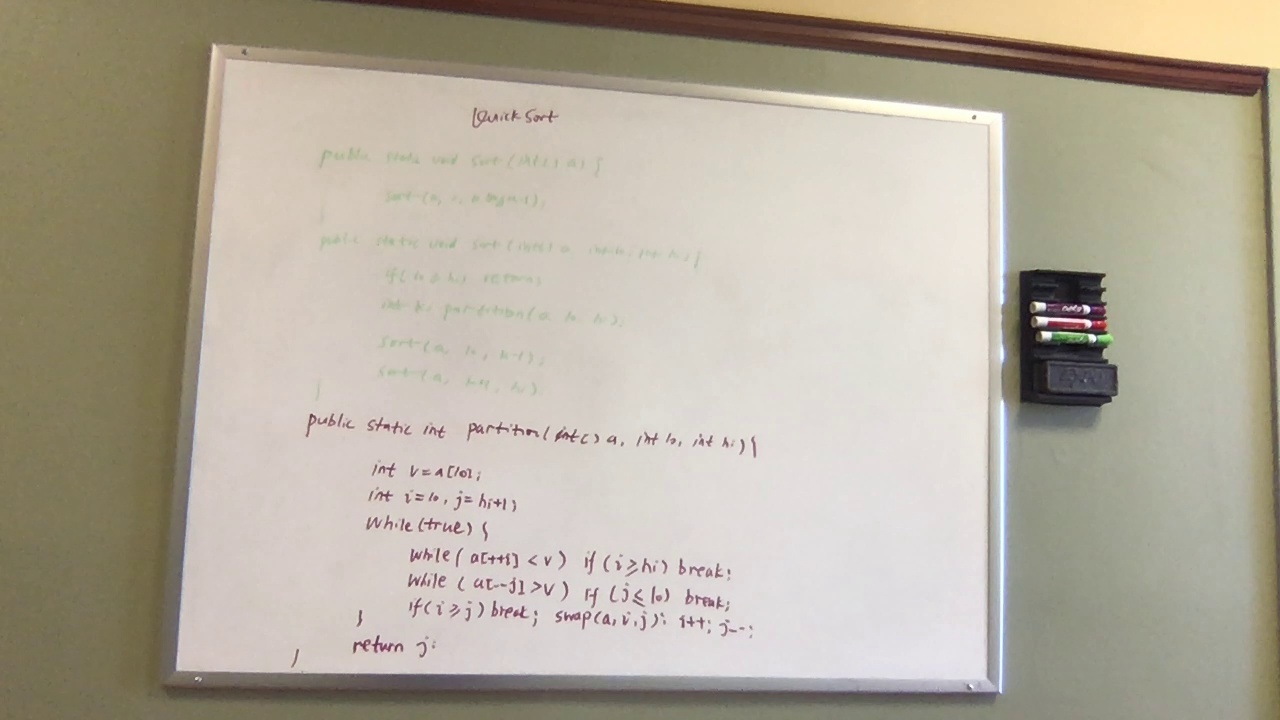 QuickSort
public static void sort(int[] a) {
sort(a,
public static void sort(int[] a int lo, int hi) {
if(lo ≥ hi) return;
int k= partition(a, lo, hi);
sort(a, lo, k-1);
sort(a, k+1, hi);
}
public static int partition(int[] a, int lo, int hi){
int v=a[lo];
int i=lo, j=hi+1;
while(true) {
while( a[++i] < v) if (i≥hi) break;
while (a[--j] >v) if (j≤ lo) break;
if(i≥j) break; swap(a,i,j); i++; j--;
}
return j;
}